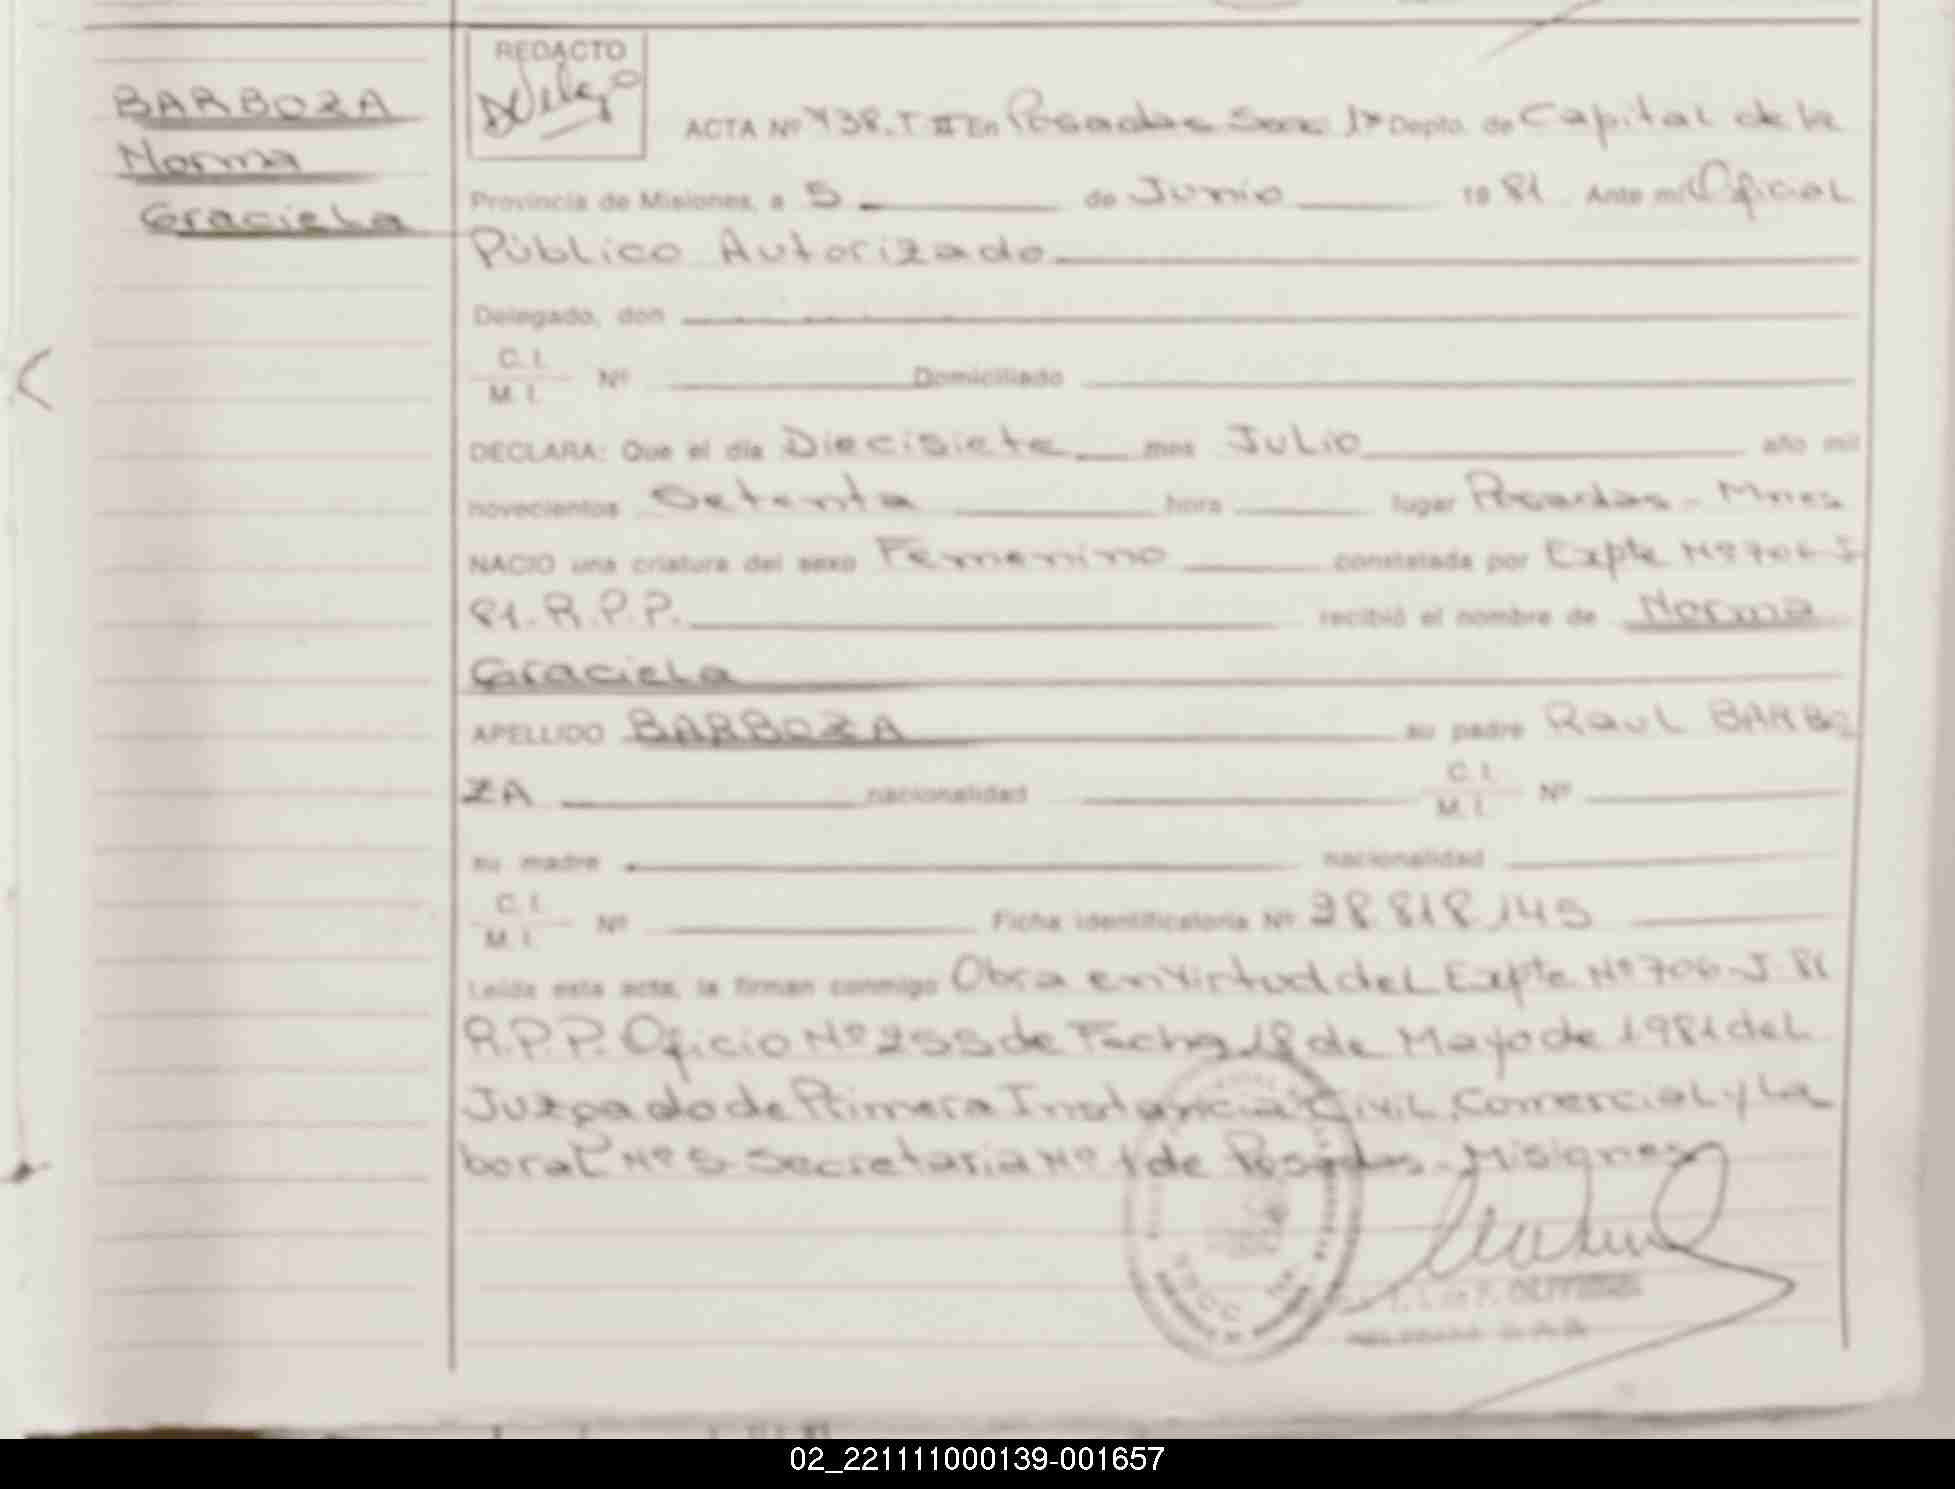 BARBOZA
Norma
Graciela
REDACTO
ACTA Nº 438. T III En Posadas Secc 1ª Depto. de Capital de la
Provincia de Misiones, a 5 de Junio 19 81 Ante mi Oficial
Público Autorizado
Delegado, don
C. I.
M. I. Nº Domiciliado
DECLARA: Que el día Diecisiete mes Julio año mil
novecientos Setenta hora lugar Posadas - Mnes
NACIO una criatura del sexo Femenino constatada por Expte Nº 706-J-
81-R.P.P. recibió el nombre de Norma
Graciela
APELLIDO BARBOZA su padre Raul BARBO
ZA nacionalidad C. I.
M. I. Nº
su madre nacionalidad
C. I.
M. I. Nº Ficha identificatoria Nº 28.818.145
Leída esta acta, la firman conmigo Obra en virtud del Expte Nº 706-J-81
R.P.P. Oficio Nº 255 de Fecha 18 de Mayo de 1981 del
Juzgado de Primera Instancia Civil, Comercial y La
boral Nº 5 Secretaria Nº 1 de Posadas - Misiones
02_221111000139-001657